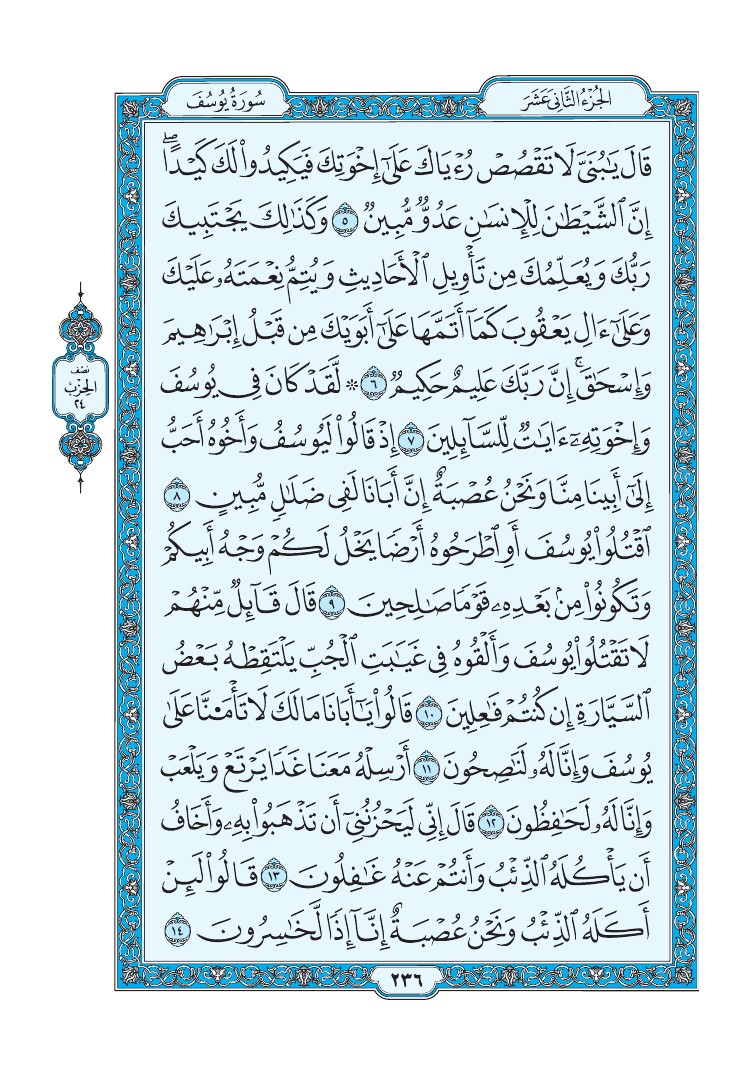 الجُزْءُ الثَّانِي عَشَرَ
سُورَةُ يُوسُفَ
قَالَ يَٰبُنَيَّ لَا تَقۡصُصۡ رُءۡيَاكَ عَلَىٰٓ إِخۡوَتِكَ فَيَكِيدُواْ لَكَ كَيۡدًاۖ
إِنَّ ٱلشَّيۡطَٰنَ لِلۡإِنسَٰنِ عَدُوّٞ مُّبِينٞ ٥ وَكَذَٰلِكَ يَجۡتَبِيكَ
رَبُّكَ وَيُعَلِّمُكَ مِن تَأۡوِيلِ ٱلۡأَحَادِيثِ وَيُتِمُّ نِعۡمَتَهُۥ عَلَيۡكَ
وَعَلَىٰٓ ءَالِ يَعۡقُوبَ كَمَآ أَتَمَّهَا عَلَىٰٓ أَبَوَيۡكَ مِن قَبۡلُ إِبۡرَٰهِيمَ
وَإِسۡحَٰقَۚ إِنَّ رَبَّكَ عَلِيمٌ حَكِيمٞ ٦ ۞ لَّقَدۡ كَانَ فِي يُوسُفَ
وَإِخۡوَتِهِۦٓ ءَايَٰتٞ لِّلسَّآئِلِينَ ٧ إِذۡ قَالُواْ لَيُوسُفُ وَأَخُوهُ أَحَبُّ
إِلَىٰٓ أَبِينَا مِنَّا وَنَحۡنُ عُصۡبَةٌ إِنَّ أَبَانَا لَفِي ضَلَٰلٖ مُّبِينٍ ٨
ٱقۡتُلُواْ يُوسُفَ أَوِ ٱطۡرَحُوهُ أَرۡضٗا يَخۡلُ لَكُمۡ وَجۡهُ أَبِيكُمۡ
وَتَكُونُواْ مِنۢ بَعۡدِهِۦ قَوۡمٗا صَٰلِحِينَ ٩ قَالَ قَآئِلٞ مِّنۡهُمۡ
لَا تَقۡتُلُواْ يُوسُفَ وَأَلۡقُوهُ فِي غَيَٰبَتِ ٱلۡجُبِّ يَلۡتَقِطۡهُ بَعۡضُ
ٱلسَّيَّارَةِ إِن كُنتُمۡ فَٰعِلِينَ ١٠ قَالُواْ يَٰٓأَبَانَا مَالَكَ لَا تَأۡمَ۬نَّا عَلَىٰ
يُوسُفَ وَإِنَّا لَهُۥ لَنَٰصِحُونَ ١١ أَرۡسِلۡهُ مَعَنَا غَدٗا يَرۡتَعۡ وَيَلۡعَبۡ
وَإِنَّا لَهُۥ لَحَٰفِظُونَ ١٢ قَالَ إِنِّي لَيَحۡزُنُنِيٓ أَن تَذۡهَبُواْ بِهِۦ وَأَخَافُ
أَن يَأۡكُلَهُ ٱلذِّئۡبُ وَأَنتُمۡ عَنۡهُ غَٰفِلُونَ ١٣ قَالُواْ لَئِنۡ
أَكَلَهُ ٱلذِّئۡبُ وَنَحۡنُ عُصۡبَةٌ إِنَّآ إِذٗا لَّخَٰسِرُونَ ١٤
نصْف
الحِزْبِ
٢٤
٢٣٦